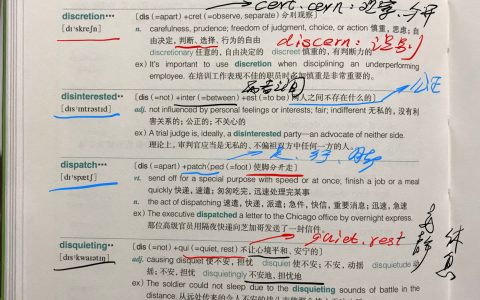 cert. cern: 观察、分开
discretion•••
[dis (=apart) +cret (=observe, separate) 分别观察]
[dɪˈskreʃn]
n. carefulness, prudence; freedom of judgment, choice, or action 慎重，思虑；自
由决定，判断、选择、行为的自由
discern: 识别
discretionary 任意的，自由决定的 discreet 慎重的，有判断力的
ex) It's important to use discretion when disciplining an underperforming
employee. 在培训工作表现不佳的职员时必须慎重是非常重要的。
disinterested••
[dis (=not) +inter (=between) +est (=to be) 两人之间不存在什么的]
[dɪsˈɪntrəstɪd]
adj. not influenced by personal feelings or interests; fair; indifferent 无私的，没有利
害关系的；公正的；不关心的
ex) A trial judge is, ideally, a disinterested party—an advocate of neither side.
理论上，审判官应当是无私的、不偏袒双方中任何一方的人。
dispatch•••
[dis (=apart) +patch(ped (=foot) 使脚分开走]
[dɪˈspætʃ]
vt. send off for a special purpose with speed or at once; finish a job or a meal
quickly 快递，速遣；匆匆吃完，迅速处理完某事
n. the act of dispatching 速遣，快递，派遣；急件，快信，重要消息；迅速，急速
ex) The executive dispatched a letter to the Chicago office by overnight express.
那位高级官员用隔夜快递向芝加哥发送了一封信件。
quiet. rest
disquieting••
[dis (=not) +qui (=quiet, rest) 不让心境平和、安宁的]
[dɪsˈkwaɪətɪŋ]
adj. causing disquiet 使不安，担忧 disquiet 使不安，动摇 disquietude 动
摇；不安，担忧 disquietingly 不安地，担忧地
ex) The soldier could not sleep due to the disquieting sounds of battle in the
distance.